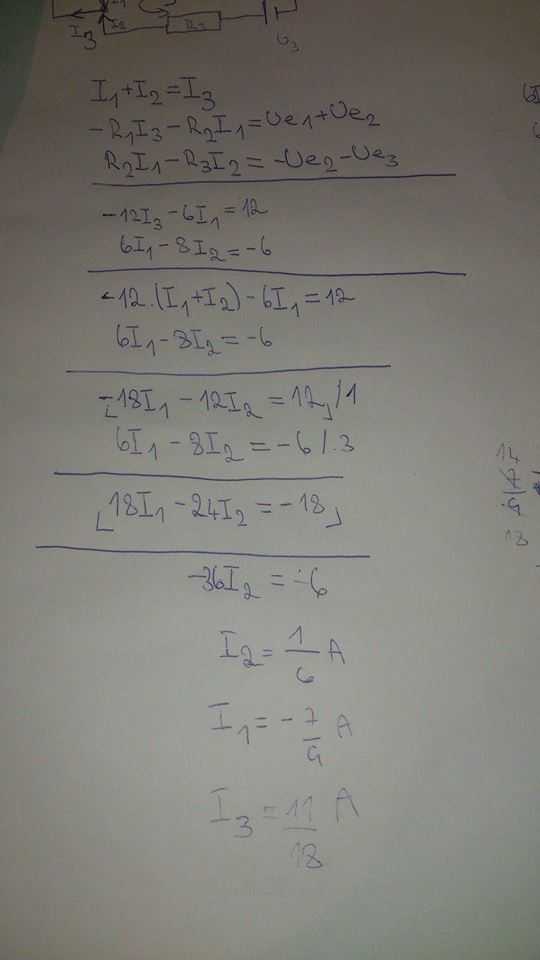 I₃ I₂ R₃
U₃
I₁+I₂=I₃
-R₁I₃-R₂I₁=Ue₁+Ue₂
R₂I₁-R₃I₂=-Ue₂-Ue₃
-12I₃-6I₁=12
6I₁-8I₂=-6
-12.(I₁+I₂)-6I₁=12
6I₁-8I₂=-6
-18I₁-12I₂=12/1
6I₁-8I₂=-6/.3
18I₁-24I₂=-18
-36I₂=-6
I₂=1/6 A
I₁=-7/9 A
I₃=11/18 A
14
7
9
18